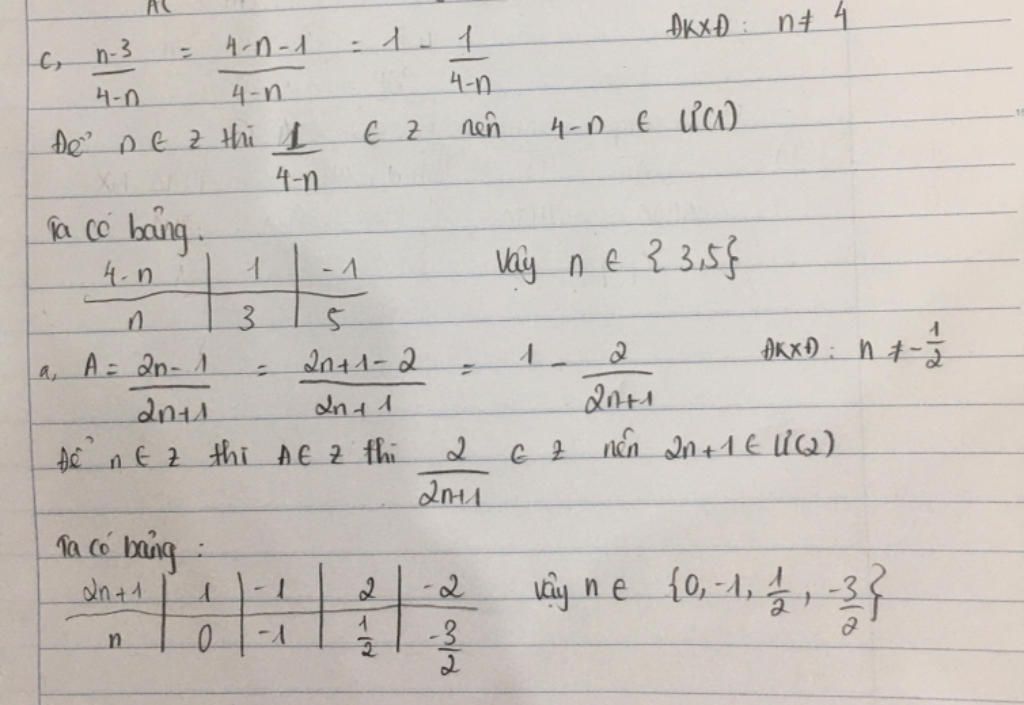 c, n-3/4-n = 4-n-1/4-n = 1 - 1/4-n ĐKXĐ: n ≠ 4
Để n ∈ Z thì 1/4-n ∈ Z nên 4-n ∈ Ư(1)
Ta có bảng.
4-n | 1 | -1
n | 3 | 5
Vậy n ∈ {3,5}
a, A = 2n-1/2n+1 = 2n+1-2/2n+1 = 1 - 2/2n+1 ĐKXĐ: n ≠ -1/2
Để n ∈ Z thì A ∈ Z thì 2/2n+1 ∈ Z nên 2n+1 ∈ Ư(2)
Ta có bảng:
2n+1 | 1 | -1 | 2 | -2
n | 0 | -1 | 1/2 | -3/2
vậy n ∈ {0, -1, 1/2, -3/2}